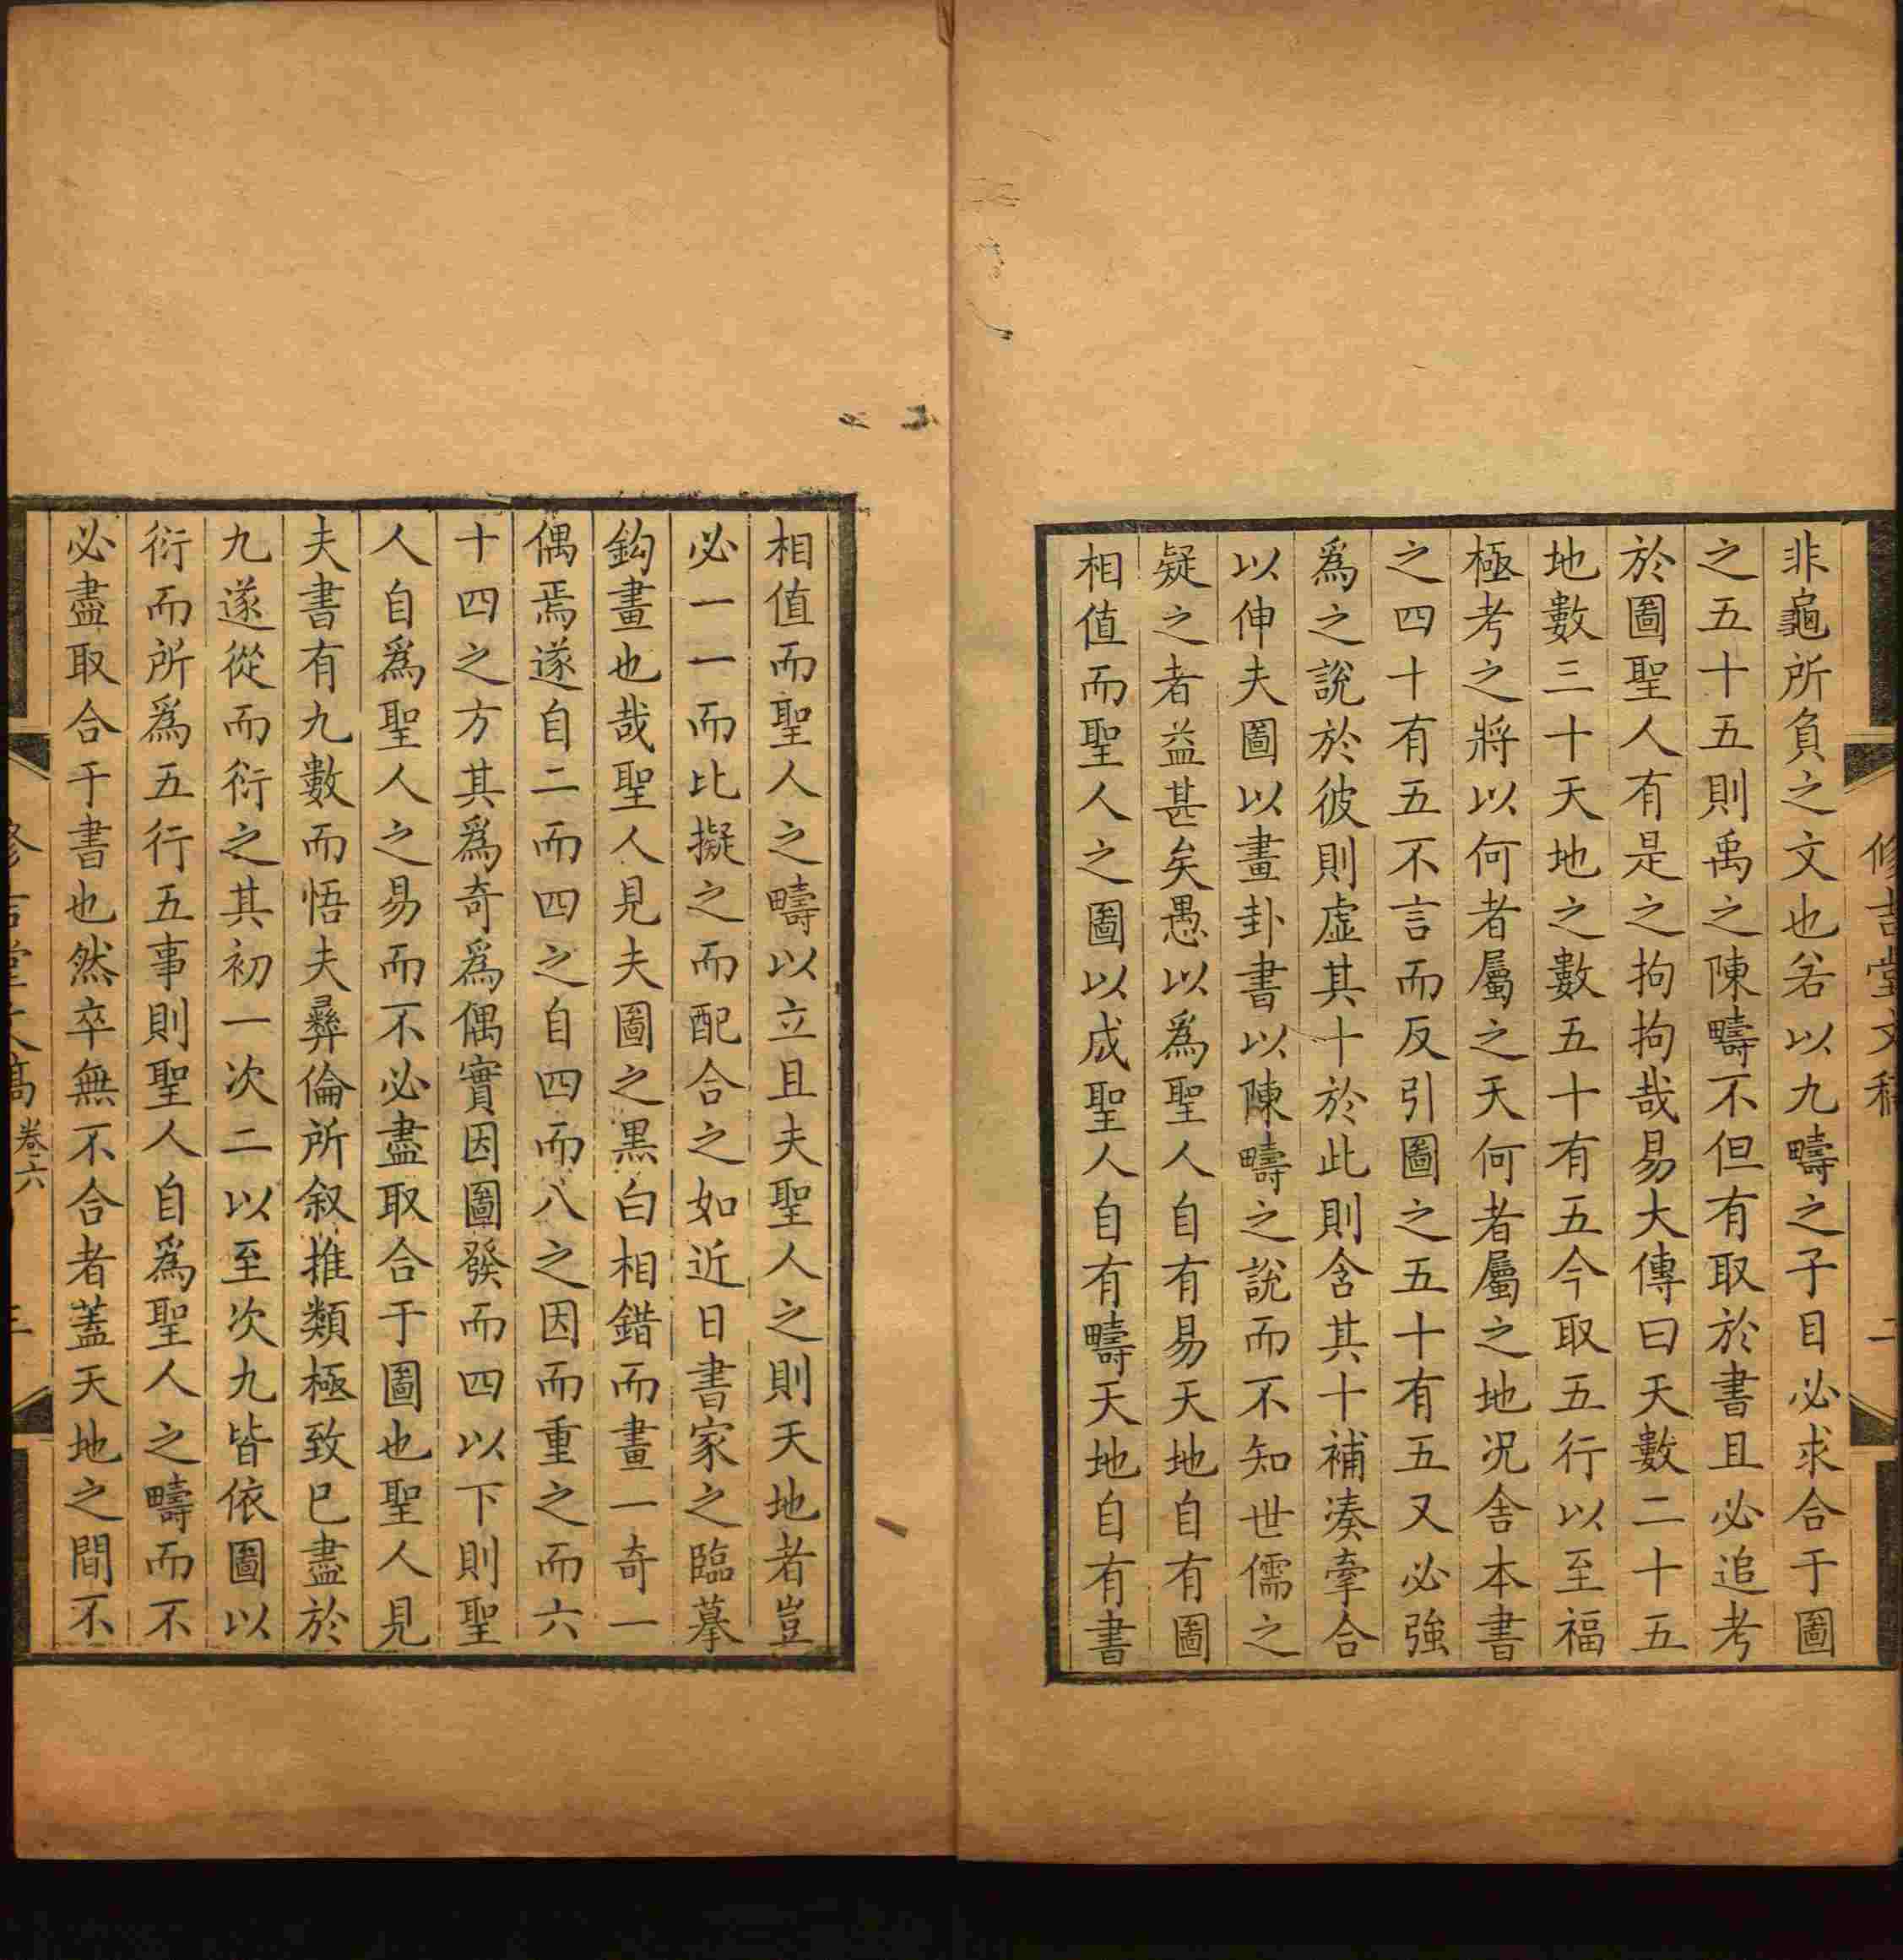 修吉堂文稿
二
非龜所負之文也若以九疇之子目必求合于圖
之五十五則禹之陳疇不但有取於書且必追考
於圖聖人有是之拘拘哉易大傳曰天數二十五
地數三十天地之數五十有五今取五行以至福
極考之將以何者屬之天何者屬之地况舍本書
之四十有五不言而反引圖之五十有五又必強
爲之說於彼則虛其十於此則含其十補湊牽合
以伸夫圖以畫卦書以陳疇之說而不知世儒之
疑之者益甚矣愚以爲聖人自有易天地自有圖
相值而聖人之圖以成聖人自有疇天地自有書
相值而聖人之疇以立且夫聖人之則天地者豈
必一一而比擬之而配合之如近日書家之臨摹
鈎畫也哉聖人見夫圖之黑白相錯而畫一奇一
偶焉遂自二而四之自四而八之因而重之而六
十四之方其爲奇爲偶實因圖發而四以下則聖
人自爲聖人之易而不必盡取合于圖也聖人見
夫書有九數而悟夫彞倫所叙推類極致已盡於
九遂從而衍之其初一次二以至次九皆依圖以
衍而所爲五行五事則聖人自爲聖人之疇而不
必盡取合于書也然卒無不合者蓋天地之間不
卷六
三